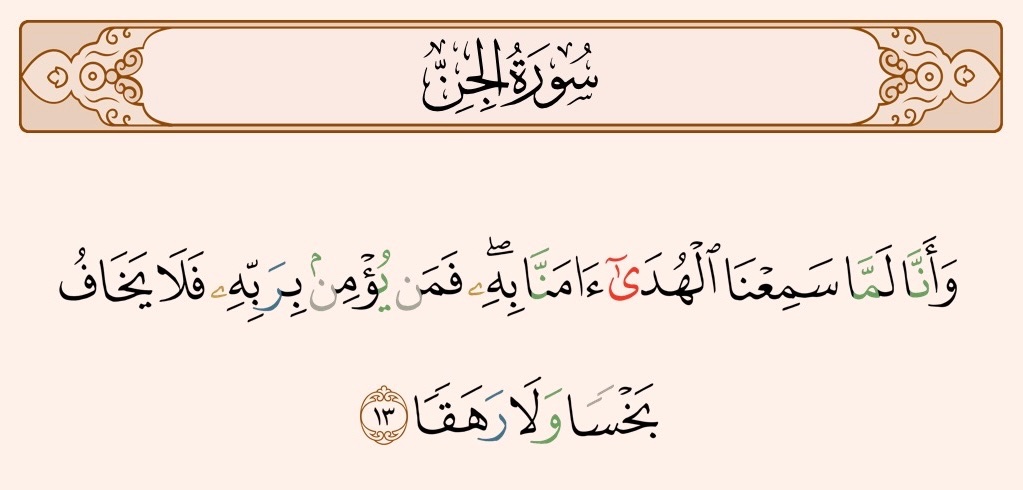 سُورَةُ الجِنِّ
وَأَنَّا لَمَّا سَمِعْنَا ٱلْهُدَىٰٓ ءَامَنَّا بِهِۦۖ فَمَن يُؤْمِنۢ بِرَبِّهِۦ فَلَا يَخَافُ
بَخْسًا وَلَا رَهَقًا ١٣